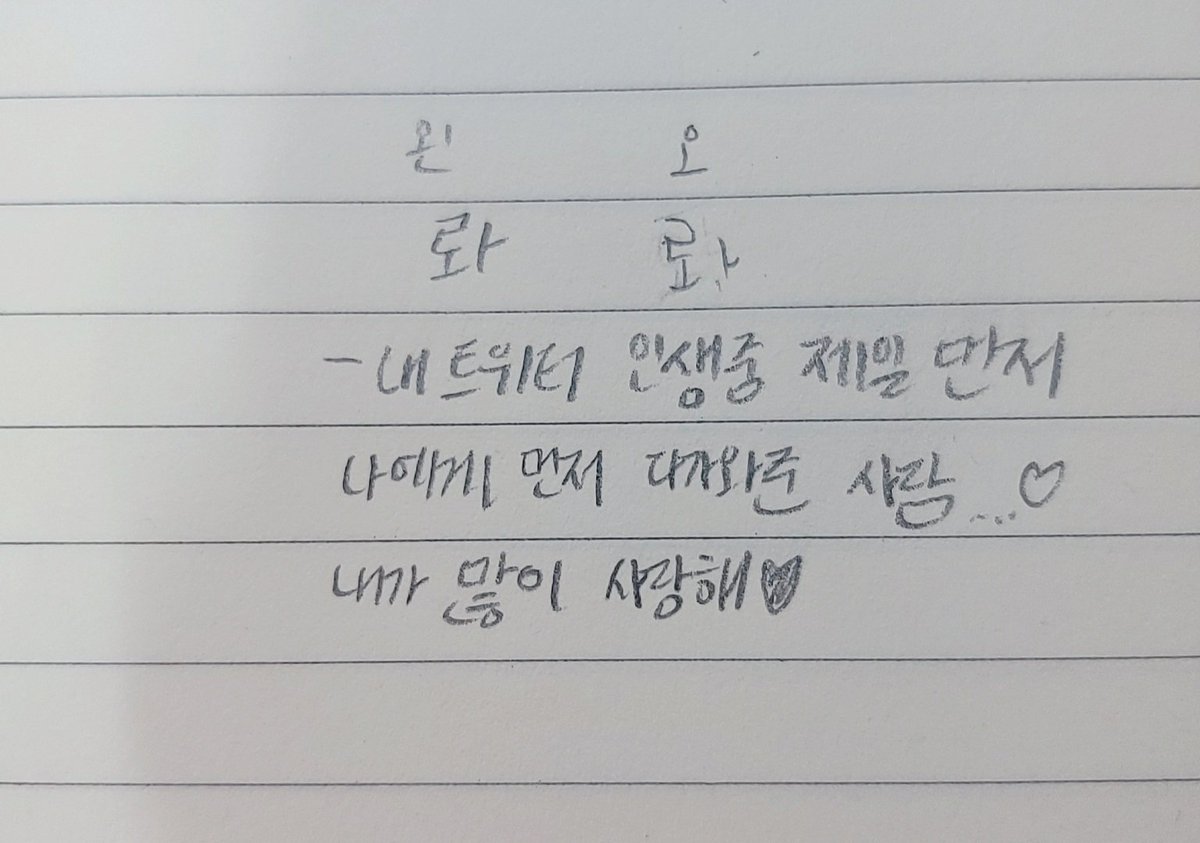 왼 오
롸 롸
- 내 트위터 인생중 제일 먼저
나에게 먼저 다가와준 사람...♡
내가 많이 사랑해♥